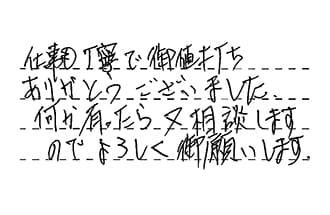 仕事も丁寧で御値打ち
ありがとうございました、
何か有ったら又相談します
のでよろしく御願いします。